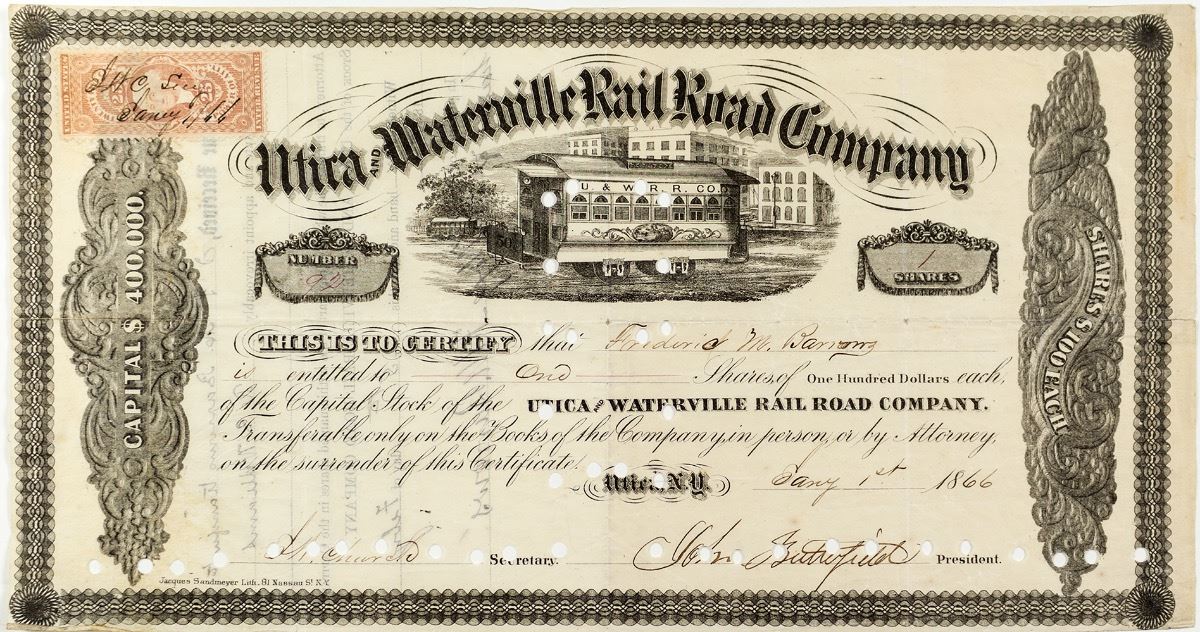 Utica AND Waterville Rail Road Company
U. & W. R. R. CO.
50
NUMBER
92
1
SHARES
CAPITAL $ 400.000.
SHARES $100 EACH
THIS IS TO CERTIFY that Frederick M. Barrows
is entitled to One Shares, of One Hundred Dollars each,
of the Capital Stock of the UTICA AND WATERVILLE RAIL ROAD COMPANY.
Transferable only on the Books of the Company, in person, or by Attorney,
on the surrender of this Certificate.
Utica, N.Y. Jany 1st 1866
Secretary. John Butterfield President.
Jacques Sandmeyer Lith. 81 Nassau St. N.Y.